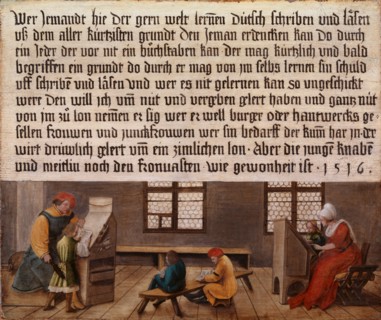 Wer Jemandt hie der gern welt lernen Dütsch schriben und läsen
uß dem aller kürtzisten grundt den Jeman erdencken kan Do durch
ein Jeder der vor nit ein büchstaben kan der mag kürtzlich und bald
begriffen ein grundt do durch er mag von jm selbs lernen sin schuld
uff schribē und läsen und wer es nit gelernen kan so ungeschickt
were den will ich um nüt und vergeben gelert haben und gantz nüt
von jm zů lon nemen er sig wer er well burger oder hantwercks ge-
sellen frouwen und junckfrouwen wer sin bedarff der kum har jn der
wirt drüwlich gelert um ein zimlichen lon · Aber die junge knabē
und meitlin noch den fronuasten wie gewonheit ist · 1516 ·